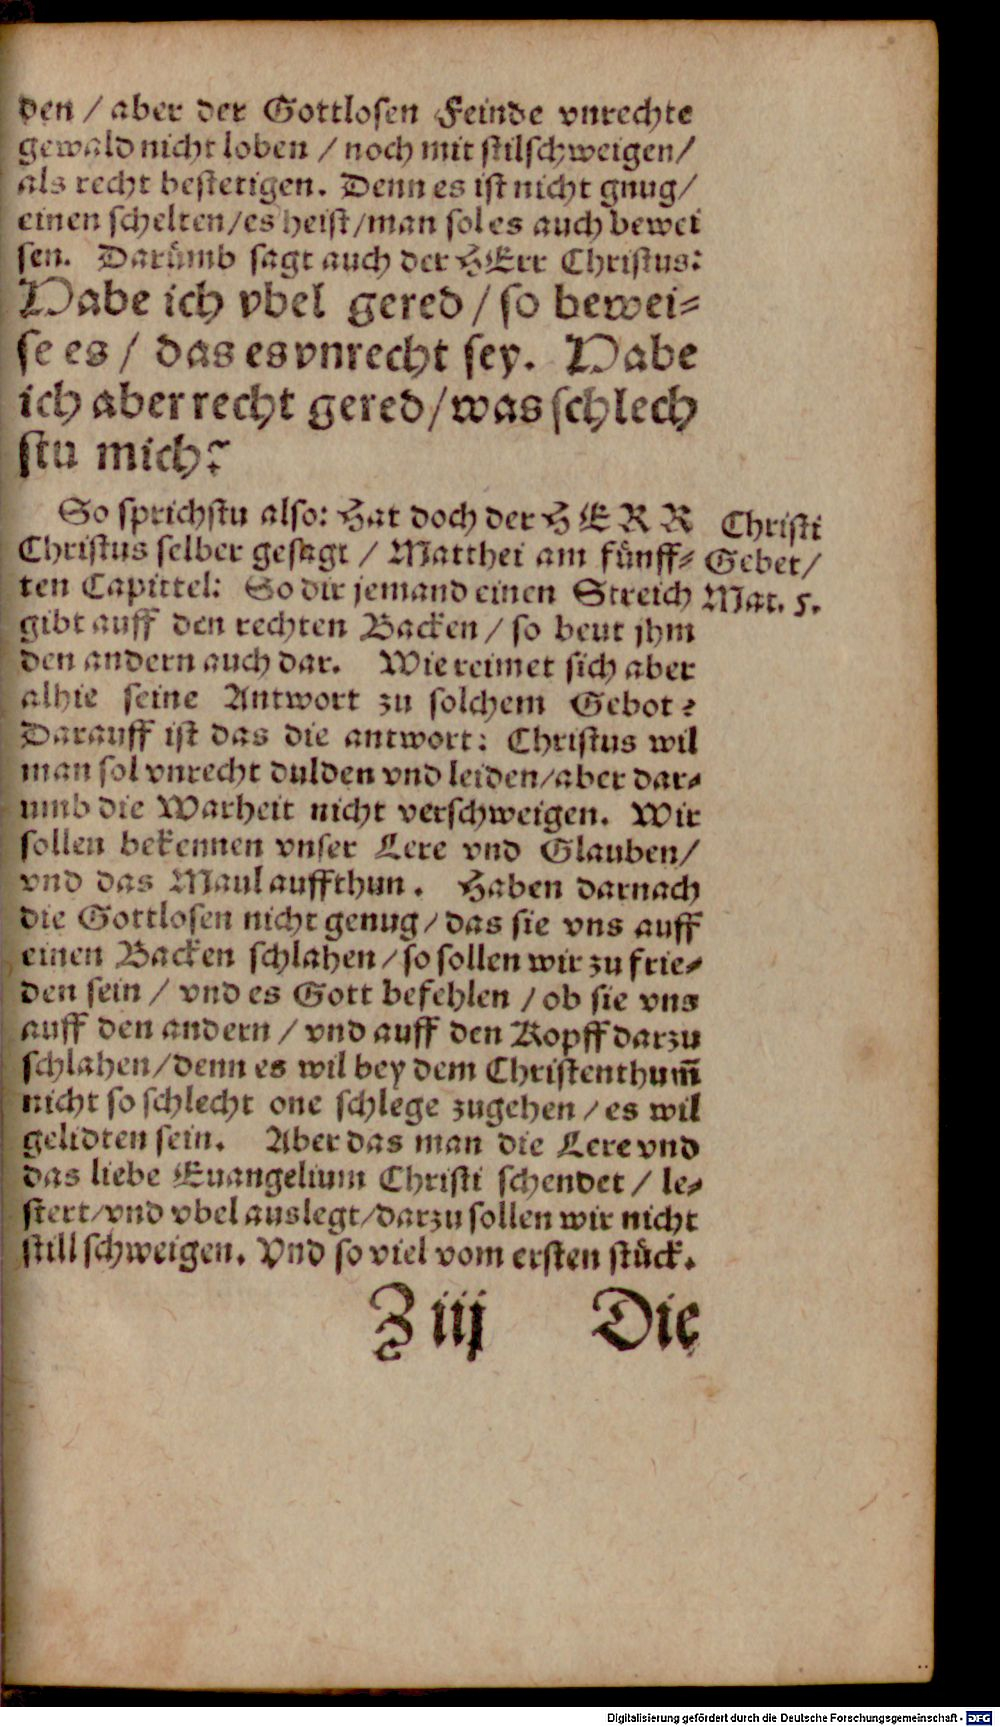 den / aber der Gottlosen Feinde vnrechte
gewald nicht loben / noch mit stilschweigen/
als recht bestetigen. Denn es ist nicht gnug/
einen schelten/es heist/man sol es auch bewei
sen. Darümb sagt auch der HErr Christus:
Habe ich vbel gered / so bewei-
se es / das es vnrecht sey. Habe
ich aber recht gered/was schlech
stu mich?
So sprichstu also: Hat doch der HERR
Christus selber gesagt / Matthei am fünff-
ten Capittel: So dir jemand einen Streich
gibt auff den rechten Backen / so beut jhm
den andern auch dar. Wie reimet sich aber
alhie seine Antwort zu solchem Gebot?
Darauff ist das die antwort: Christus wil
man sol vnrecht dulden vnd leiden/aber dar-
umb die Warheit nicht verschweigen. Wir
sollen bekennen vnser Lere vnd Glauben/
vnd das Maul auffthun. Haben darnach
die Gottlosen nicht genug/das sie vns auff
einen Backen schlahen/so sollen wir zu frie-
den sein / vnd es Gott befehlen / ob sie vns
auff den andern / vnd auff den Kopff darzu
schlahen/denn es wil bey dem Christenthum̃
nicht so schlecht one schlege zugehen / es wil
gelidten sein. Aber das man die Lere vnd
das liebe Euangelium Christi schendet / le-
stert/vnd vbel auslegt/darzu sollen wir nicht
still schweigen. Vnd so viel vom ersten stück.
Z iij Die
Christi
Gebet/
Mat. 5.
Digitalisierung gefördert durch die Deutsche Forschungsgemeinschaft - DFG